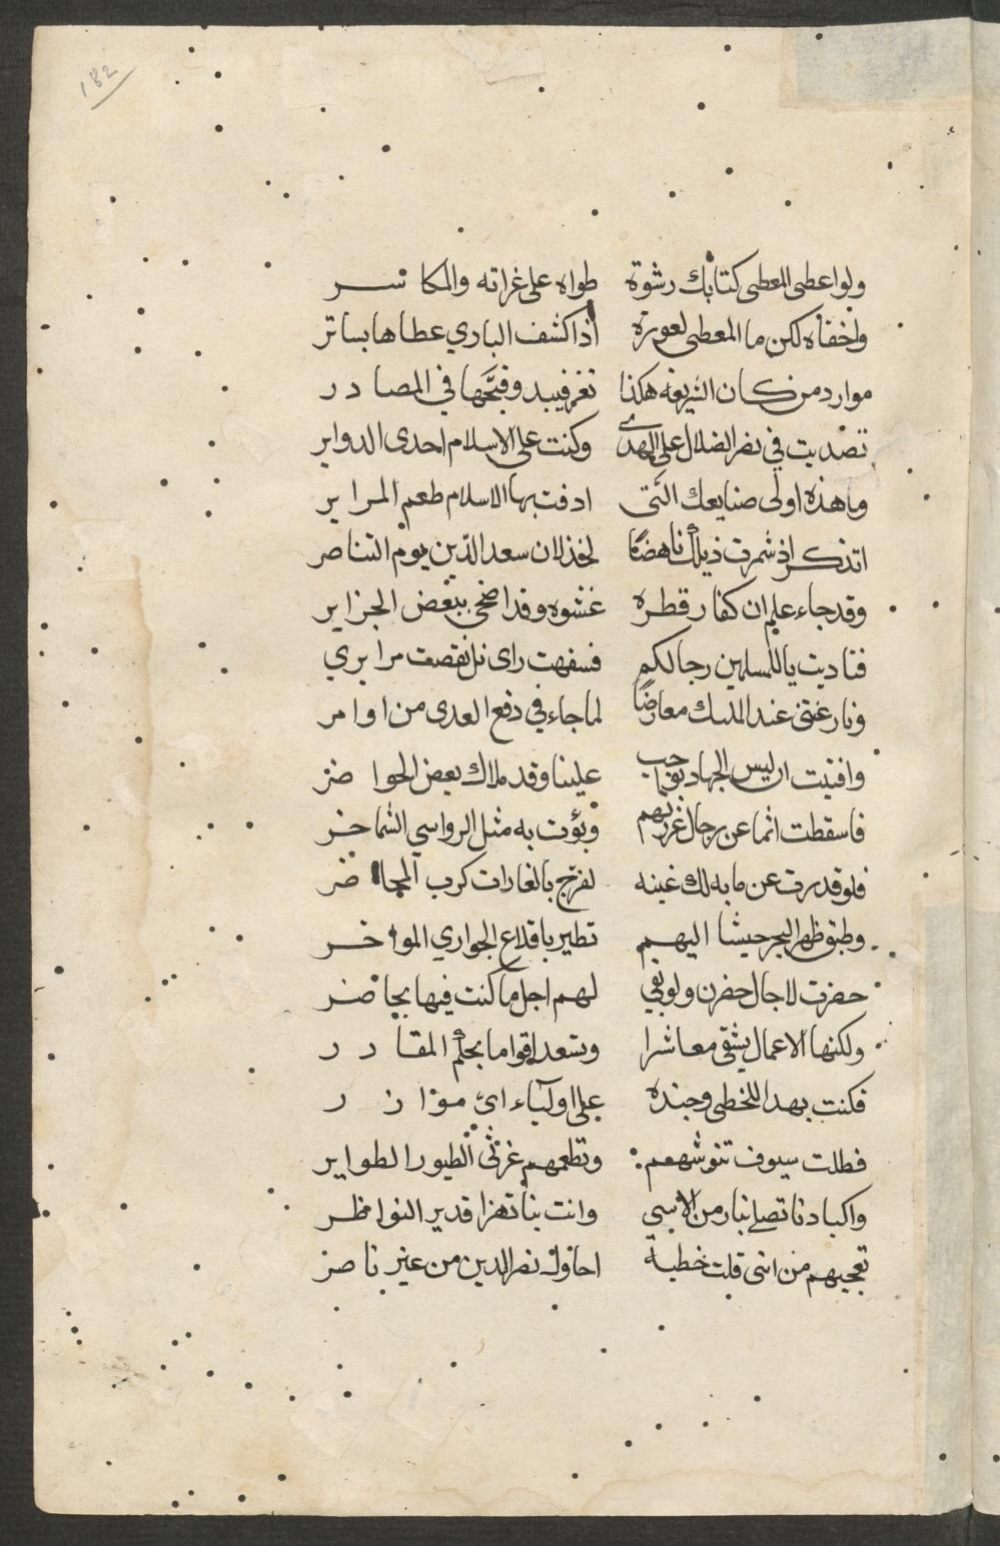 182
ولو اعطى المعطى كتابك رشوة طواه على غراته والمكاشر
واخفاه لكن ما المعطى لعورة اذا كشف الباري عطاها بساتر
موارد من كان الشريعه هكذا تغر فيبد وقبحها في المصادر
تصديت في نصر الضلال على الهدى وكنت على الاسلام احدى الدواير
وما هذه اولى صنايعك التى ادقت بها الاسلام طعم المراير
اتذكر اذ شمرت ذيلك ناهضًا لخذلان سعد الدين يوم التناصر
وقد جاء علم ان كفار قطره غشوه وقد اضحى ببعض الجزاير
فناديت يا للمسلمين رجالكم فسفهت راى نل نقصت مرايري
ونازعتنى عند المليك معارضًا لما جاء في دفع العدى من اوامر
وافتيت ان ليس الجهاد بواجب علينا وقد ملاك بعض الحواضر
فاسقطت اثما عن رجال غررتهم وبؤت به مثل الرواسي الشماخر
فلو قدرت عن ما به لك غينه لفرج بالغارات كرب المحاضر
وطبق ظهر البحر جيشا اليهم تطير باقلاع الجواري المواخر
حضرت لاجال حضرن ولو بقي لهم اجل ما كنت فيها بحاضر
ولكنها الاعمال يشقى معاشرا وتسعد اقواما بحكم المقادر
فكنت بهدا للخطى وجنده على اولياء اى موازر
فظلت سيوف تنوشهم وتطعمهم غرثى الطيور الطواير
واكبادنا تصلى بنار من الاسي وانت بنا تهزا قدير النواظر
تعجبهم من انى قلت خطبة احاول نصر الدين من غير ناصر